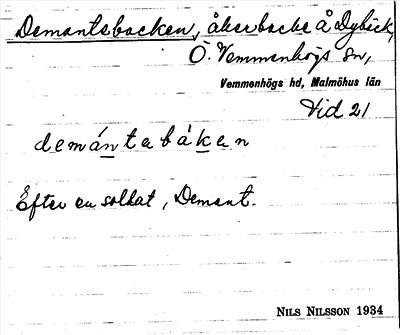 Demantsbacken, åkerbacke å Dybäck,
Ö. Vemmenhögs sn,
Vemmenhögs hd, Malmöhus län
Vid 21
demántabákan
Efter en soldat, Demant.
NILS NILSSON 1934